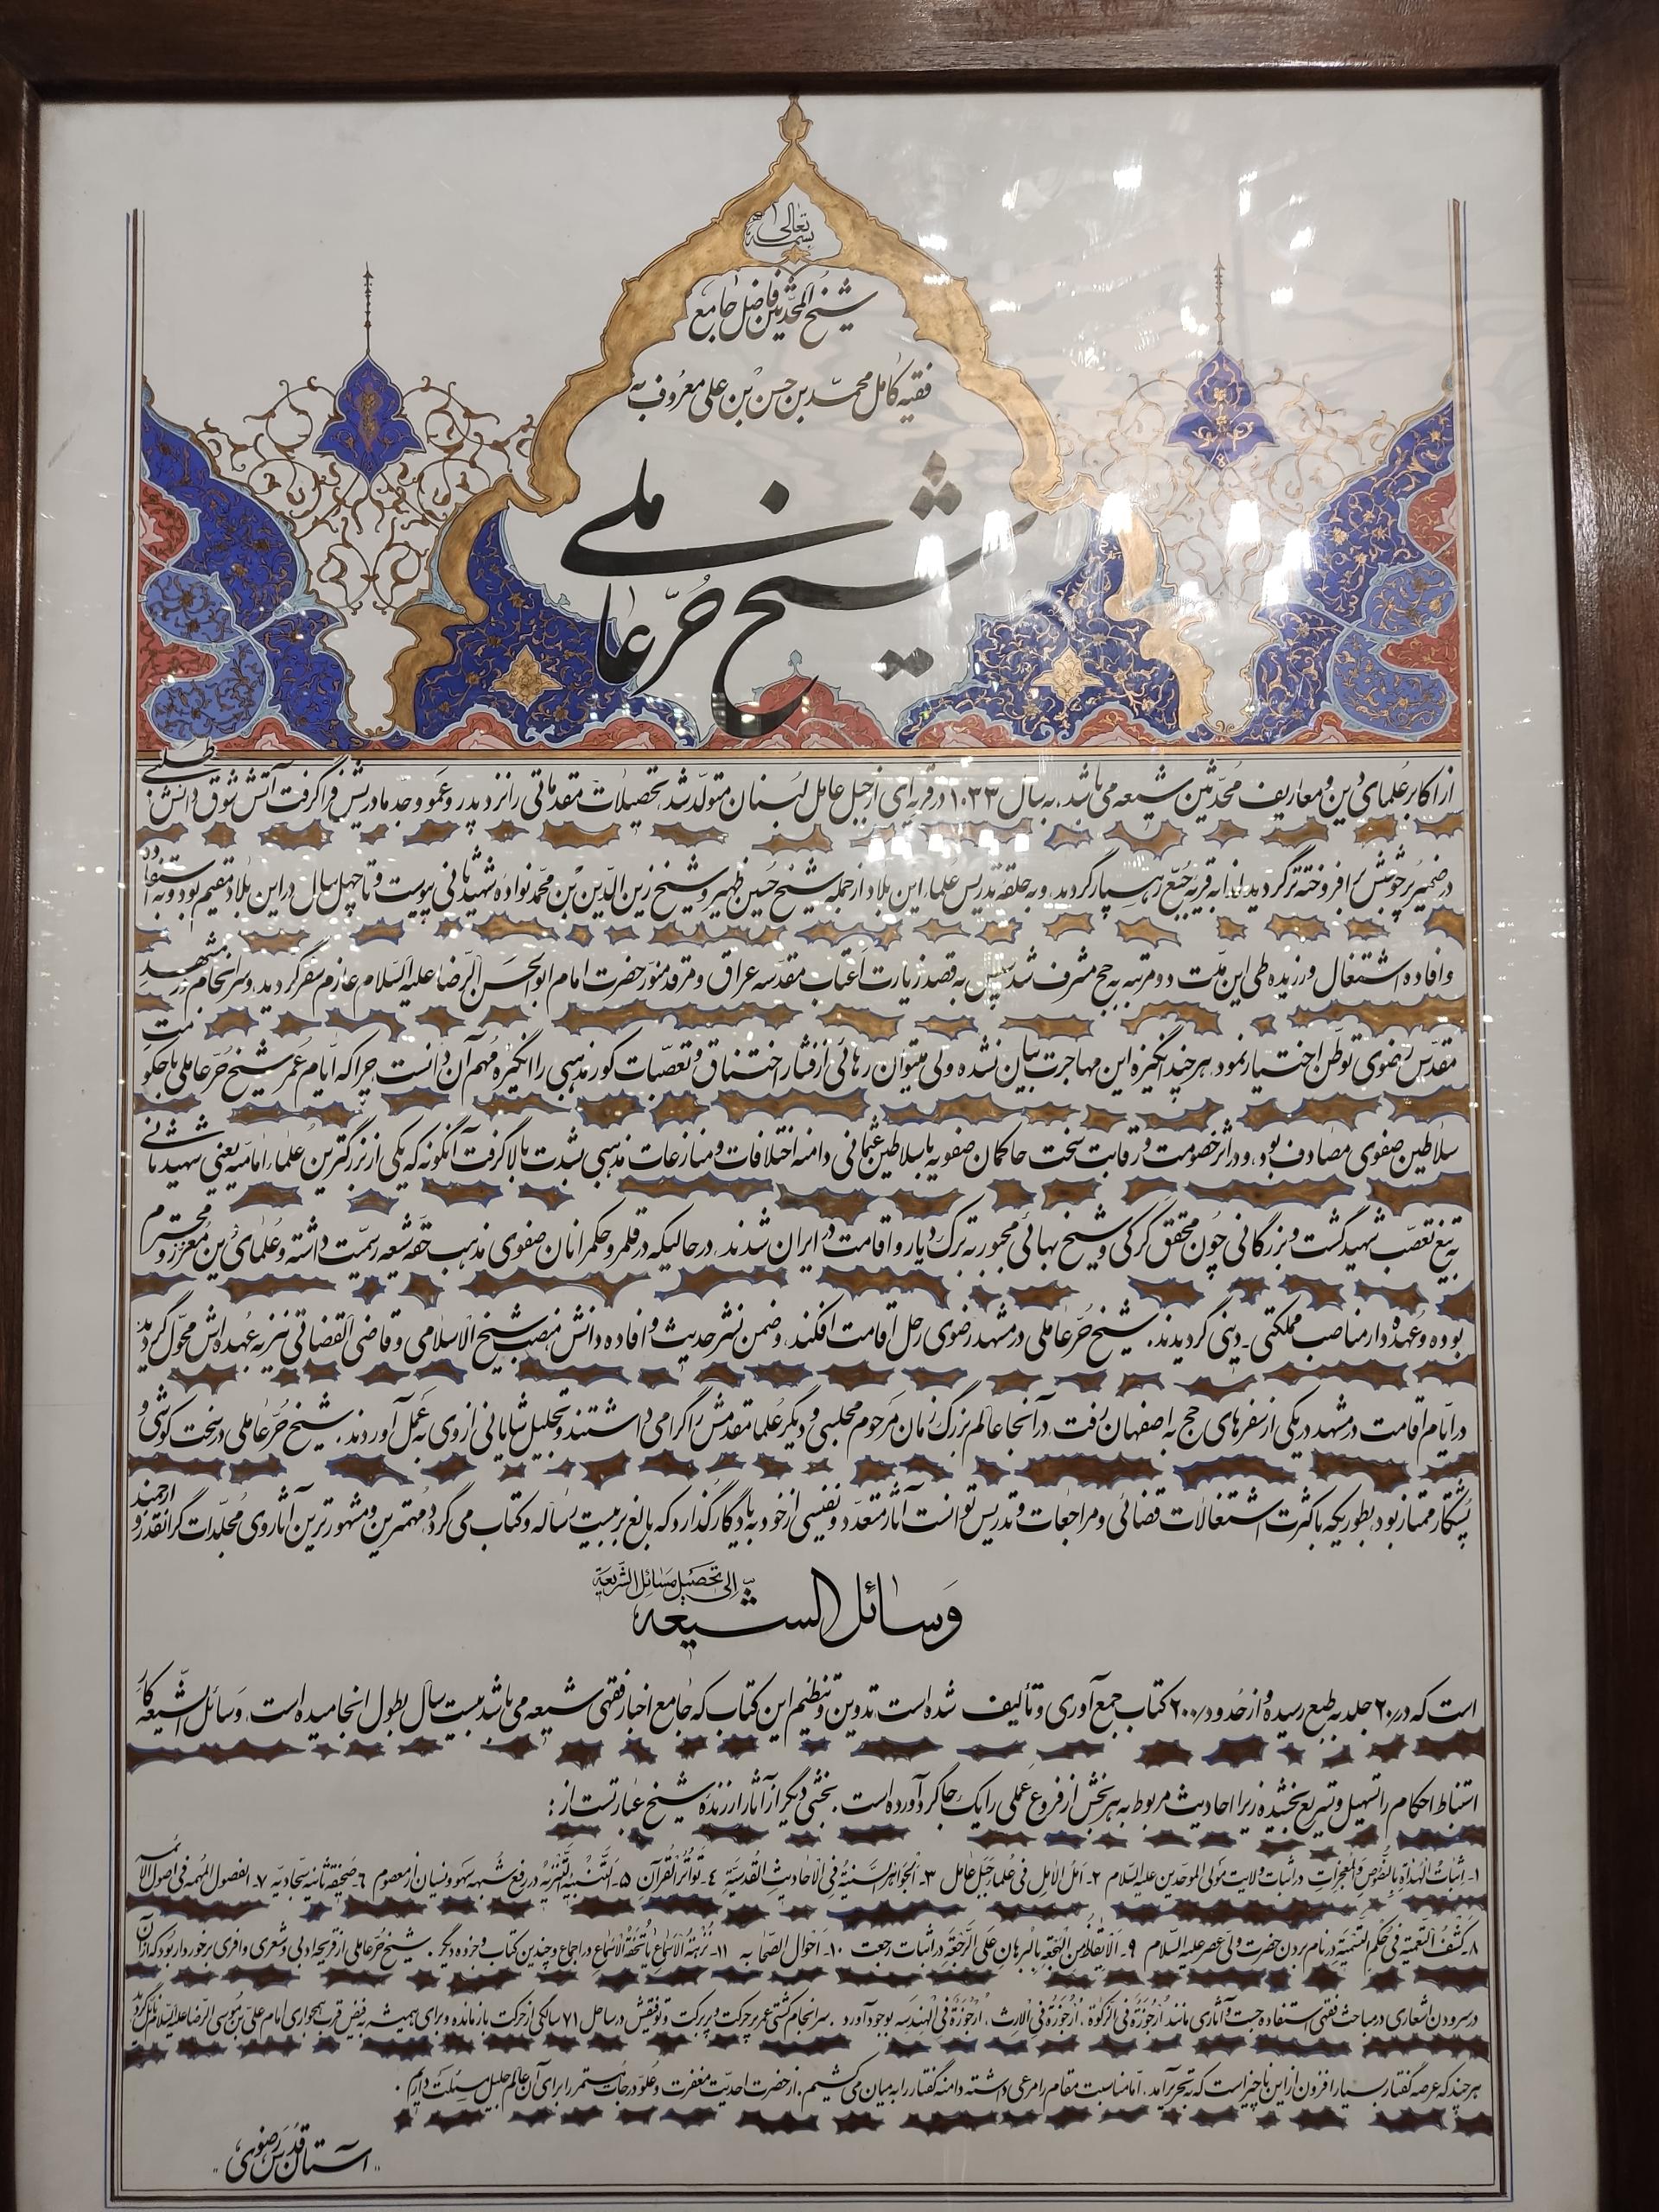 بسمه تعالی
شیخ المحدثین فاضل جامع
فقیه کامل محمد بن حسن بن علی معروف به
شیخ حر عاملی
از اکابر علمای دین و معاریف محدثین شیعه می باشد، به سال ۱۰۳۳ در قریه ای از جبل عامل لبنان متولد شد، تحصیلات مقدماتی را نزد پدر و عمو و جد مادریش فرا گرفت آتش شوق دانش طلبی
در ضمیر پرجوشش برافروخته تر گردید لذا به قریه جبع رهسپار گردید، و به حلقه تدریس علماء این بلاد از جمله شیخ حسین ظهیر و شیخ زین الدین بن محمد نواده شهید ثانی پیوست و تا چهل سال در این بلاد مقیم بود و به استفاده
و افاده اشتغال ورزیده طی این مدت دو مرتبه به حج مشرف شد سپس به قصد زیارت اعتاب مقدسه عراق و مرقد منور حضرت امام ابوالحسن الرضا علیه السلام عازم سفر گردید، و سرانجام در مشهد
مقدس رضوی توطن اختیار نمود هر چند انگیزه این مهاجرت بیان نشده ولی میتوان رهائی از فشار اختناق و تعصبات کور مذهبی را انگیزه مهم آن دانست چرا که ایام عمر شیخ حر عاملی با حکومت
سلاطین صفوی مصادف بود، و در اثر خصومت و رقابت سخت حاکمان صفویه با سلاطین عثمانی دامنه اختلافات و منازعات مذهبی بشدت بالا گرفت آنگونه که یکی از بزرگترین علماء امامیه یعنی شهید ثانی
به تیغ تعصب شهید گشت و بزرگانی چون محقق کرکی و شیخ بهائی مجبور به ترک دیار و اقامت در ایران شدند، در حالیکه در قلمرو حکمرانان صفوی مذهب حقه شیعه رسمیت داشته و علمای دین معزز و محترم
بوده و عهده دار مناصب مملکتی - دینی گردیدند. شیخ حر عاملی در مشهد رضوی رحل اقامت افکند، و ضمن نشر حدیث و افاده دانش منصب شیخ الاسلامی و قاضی القضاتی نیز به عهده اش محول گردید
در ایام اقامت در مشهد در یکی از سفرهای حج به اصفهان رفت، در آنجا عالم بزرگ زمان مرحوم مجلسی و دیگر علما مقدمش را گرامی داشتند و تجلیل شایانی از وی به عمل آوردند. شیخ حر عاملی در سخت کوشی و
پشتکار ممتاز بود، بطوریکه با کثرت اشتغالات قضائی و مراجعات و تدریس توانست آثار متعدد و نفیسی از خود به یادگار گذارد که بالغ بر بیست رساله و کتاب می گردد مهمترین و مشهورترین آثار وی مجلدات گرانقدر و ارجمند
وسائل الشیعه إلی تحصیل مسائل الشریعة
است که در ۲۰ جلد به طبع رسیده و از حدود ۲۰۰ کتاب جمع آوری و تألیف شده است، تدوین و تنظیم این کتاب که جامع اخبار فقهی شیعه می باشد بیست سال بطول انجامیده است، وسائل الشیعه کار
استنباط احکام را تسهیل و تسریع بخشیده زیرا احادیث مربوط به هر بخش از فروع عملی را یک جا گرد آورده است. بخشی دیگر از آثار ارزنده شیخ عبارتست از :
۱- اثبات الهداة بالنصوص و المعجزات در اثبات ولایت مولی الموحدین علیه السلام ۲- امل الامل فی علماء جبل عامل ۳- الجواهر السنیة فی الاحادیث القدسیة ۴- تواتر القرآن ۵- التنبیه التنزیه در رفع شبهه سهو و نسیان از معصوم ۶- صحیفه ثانیه سجادیه ۷- الفصول المهمه فی اصول الائمه
۸- کشف التعمیة فی حکم التسمیة در نام بردن حضرت ولی عصر علیه السلام ۹- الایقاظ من الهجعة بالبرهان علی الرجعة در اثبات رجعت ۱۰- احوال الصحابه ۱۱- نزهة الاسماع یا تحفة الاسماع در اجماع و چندین کتاب و جزوه دیگر. شیخ حر عاملی از قریحه ادبی و شعری وافری برخوردار بود که از آن
در سرودن اشعاری در مباحث فقهی استفاده جست و آثاری مانند ارجوزة فی الزکوة، ارجوزة فی الارث، ارجوزة فی الهندسه بوجود آورد. سرانجام کشتی عمر پر حرکت و پر برکت و توفیقش در ساحل ۷۱ سالگی از حرکت بازمانده و برای همیشه به فیض قرب همجواری امام علی بن موسی الرضا علیه السلام نائل گردید
هر چند که عرصه گفتار بسیار افزون از این ناچیز است که به تحریر آمد، اما مناسبت مقام را مرعی داشته و دامنه گفتار را به میان می کشیم. از حضرت احدیت مغفرت و علو درجات مستمر را برای آن عالم جلیل مسئلت داریم.
"آستان قدس رضوی"